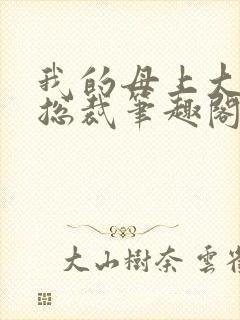 我的母上大
总裁笔趣阁
大山樹奈 雲雀